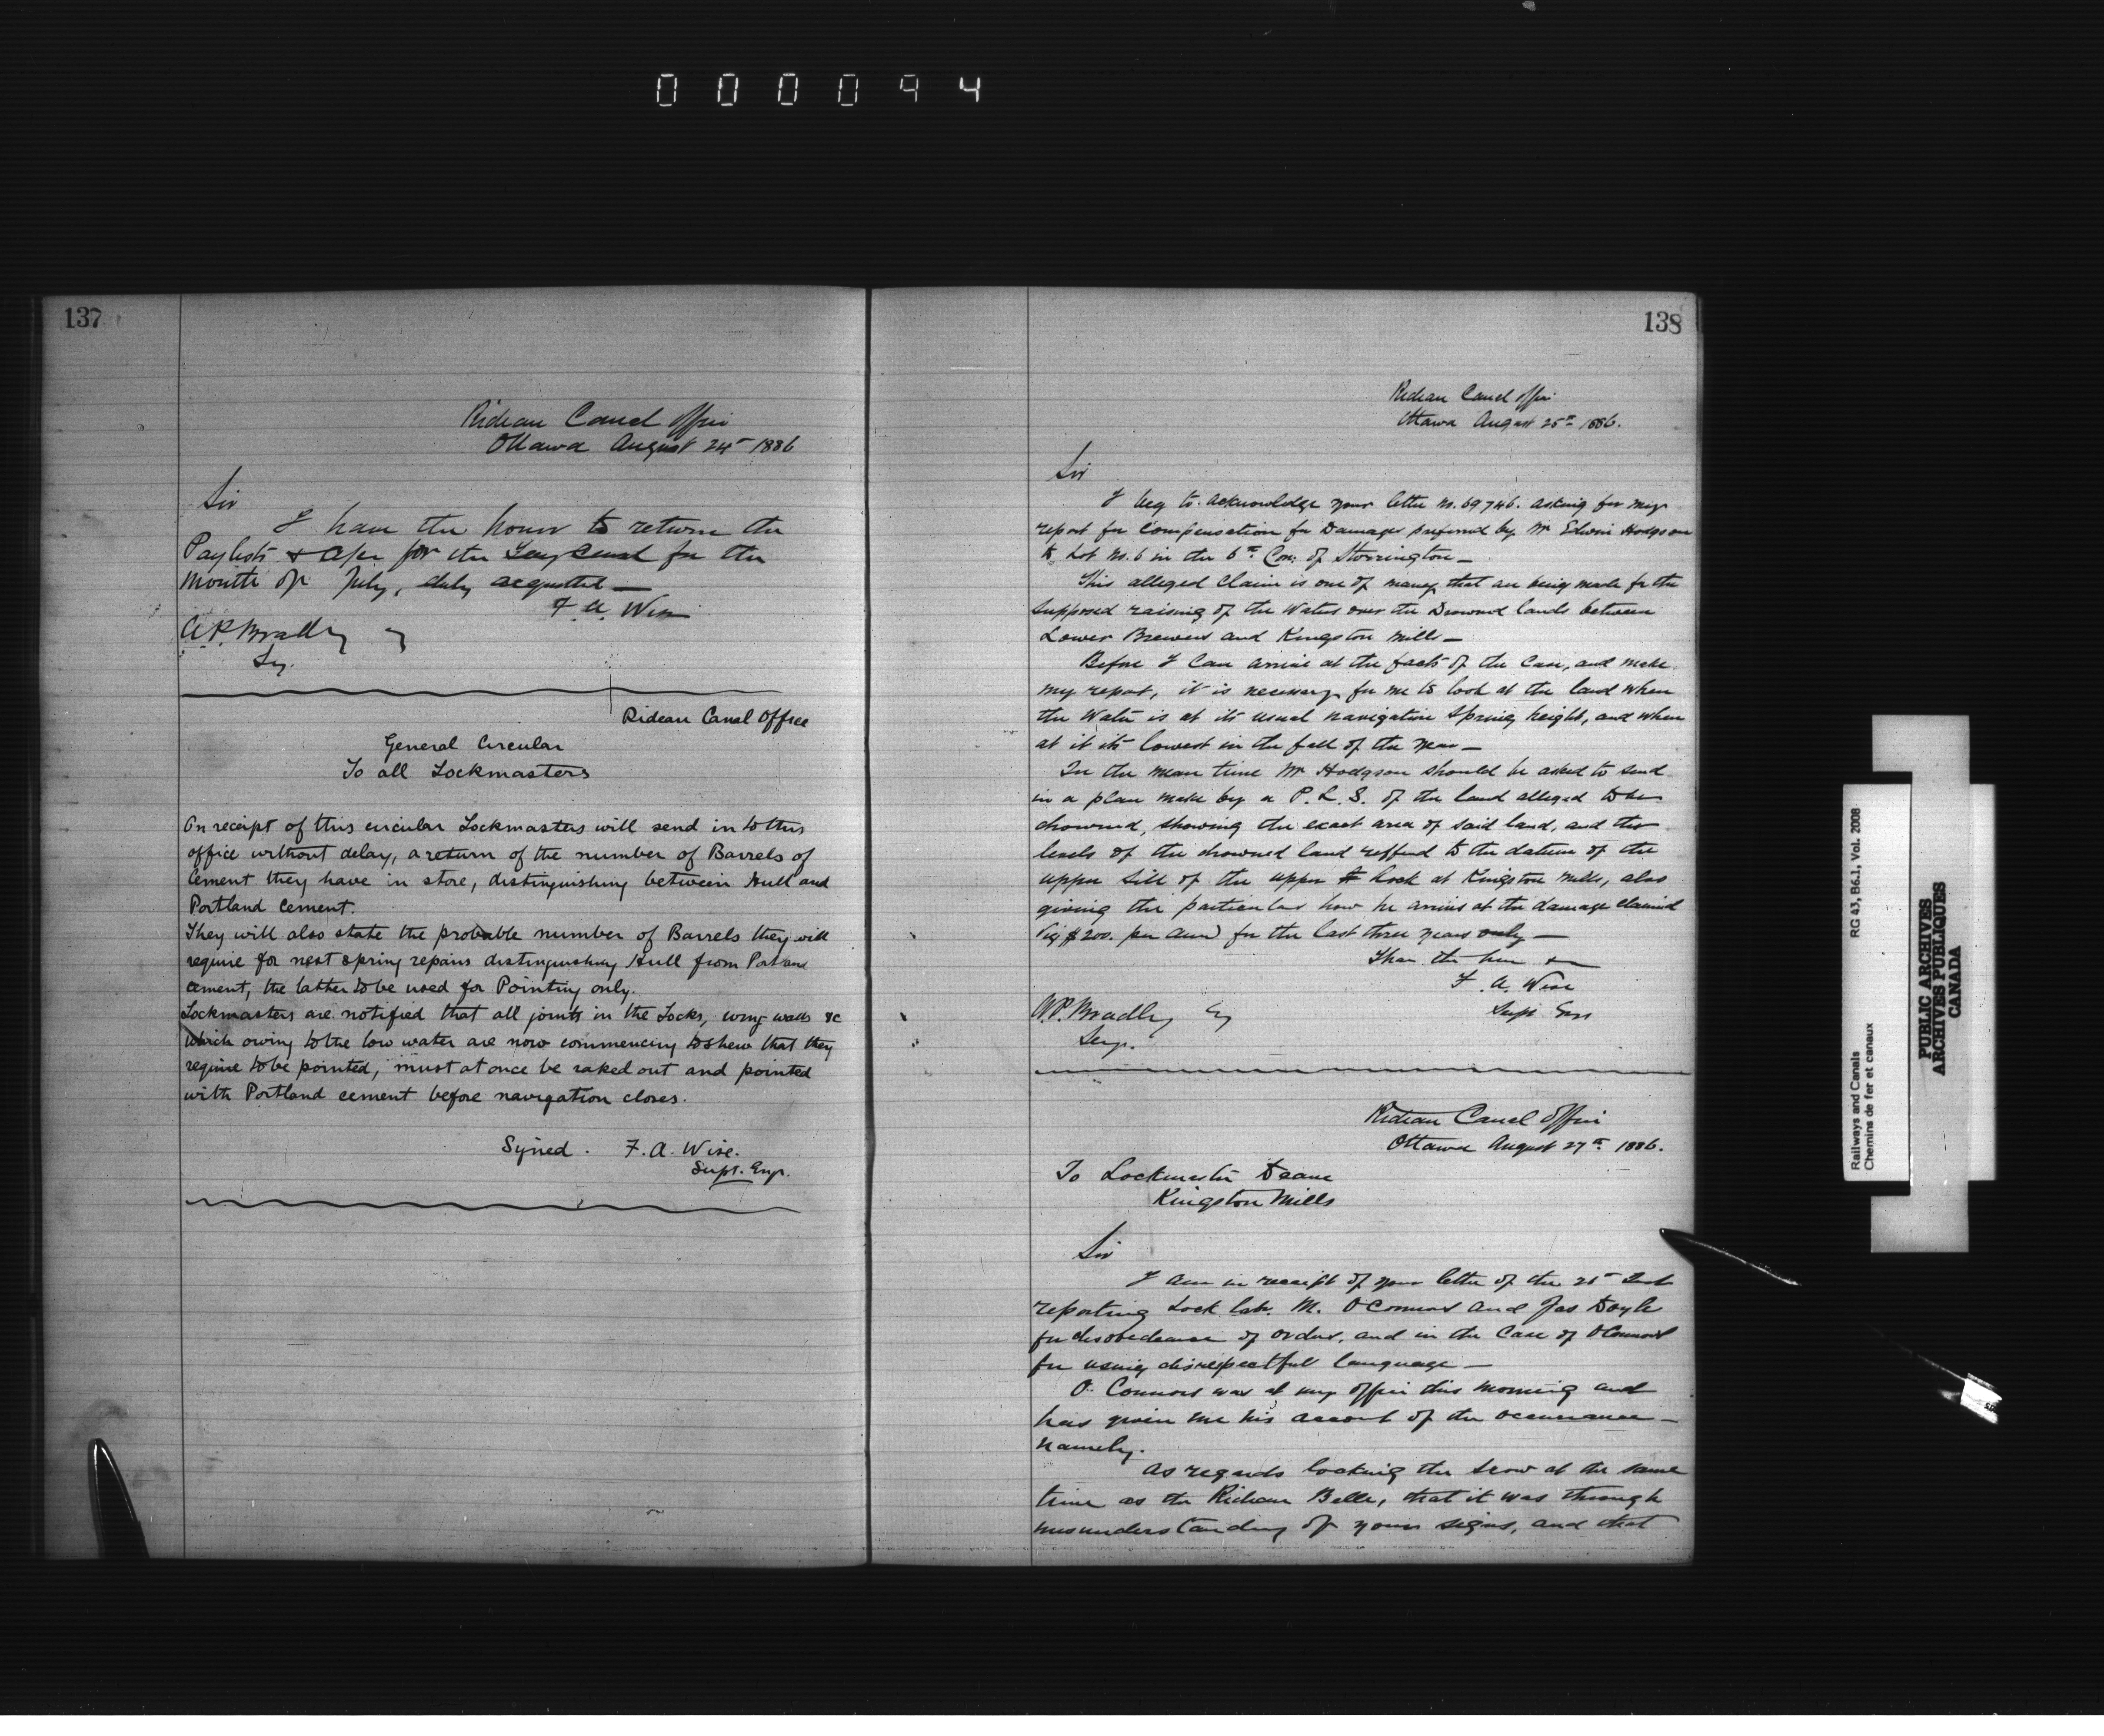 000094
137
Rideau Canal Office
Ottawa August 24th 1886
Sir
I have the honor to return the
Paylists & a/cs for the Tay Canal for the
month of July, duly acquitted —
F. A. Wise
A. P. Bradley Esq
Secy.
Rideau Canal Office
General Circular
To all Lockmasters
On receipt of this circular Lockmasters will send in to this
office without delay, a return of the number of Barrels of
Cement they have in store, distinguishing between Hull and
Portland Cement.
They will also state the probable number of Barrels they will
require for next spring repairs distinguishing Hull from Portland
cement, the latter to be used for Pointing only.
Lockmasters are notified that all joints in the Locks, wing walls &c
which owing to the low water are now commencing to shew that they
require to be pointed, must at once be raked out and pointed
with Portland cement before navigation closes.
Signed. F. A. Wise.
Supt. Engr.
138
Rideau Canal Office
Ottawa August 25th 1886.
Sir
I beg to acknowledge your letter No. 69746. asking for my
report for compensation for Damages preferred by Mr Edwin Hodgson
to Lot No. 6 in the 6th Con: of Storrington —
This alleged claim is one of many that are being made for the
supposed raising of the Waters over the Drowned lands between
Lower Brewers and Kingston Mills —
Before I can arrive at the facts of the case, and make
my report, it is necessary for me to look at the land when
the Water is at its usual navigation Spring height, and when
at it its lowest in the fall of the year —
In the mean time Mr Hodgson should be asked to send
in a plan made by a P. L. S. of the land alleged to be
drowned, showing the exact area of said land, and the
levels of the drowned land reffered to the datum of the
upper sill of the upper Lock at Kingston Mills, also
giving the particulars how he arrives at the damage claimed
Viz $200. per ann) for the last three years only —
I have the honor &c
F. A. Wise
Supt Engr
A. P. Bradley Esq
Secy.
Rideau Canal Office
Ottawa August 27th 1886.
To Lockmaster Deane
Kingston Mills
Sir
I am in receipt of your letter of the 25th Inst
reporting Lock lab. M. O'Connor and Jas Doyle
for disobedience of orders, and in the case of O'Connor
for using disrespectful language —
O'Connor was at my office this morning and
has given me his account of the occurrance —
namely.
As regards locking the scow at the same
time as the Rideau Belle, that it was through
misunderstanding of your signs, and that
Railways and Canals
Chemins de fer et canaux
RG 43, B6.1, Vol. 2008
PUBLIC ARCHIVES
ARCHIVES PUBLIQUES
CANADA